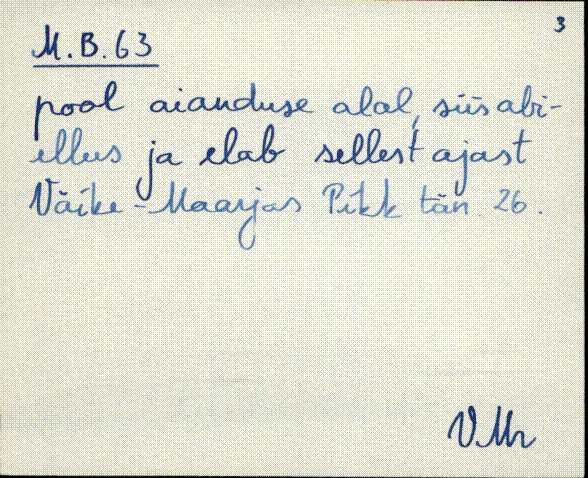 3
M.B.63
pool aianduse alal, siis abi-
ellus ja elab sellest ajast
Väike-Maarjas Pikk tän. 26.
V.Mr